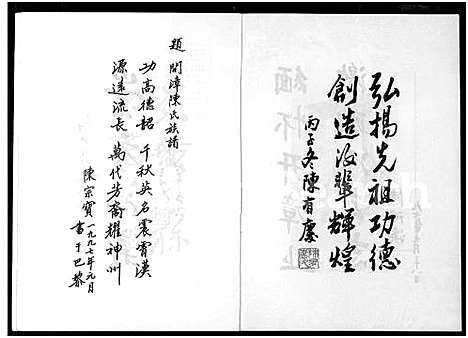 弘揚先祖功德
創造汝輩輝煌
丙子冬陳有慶
題 開漳陳氏族譜
功高德韶 千秋英名震霄漢
源遠流長 萬代芳裔耀神州
陳宗寶
一九九七年元月
書于巴黎